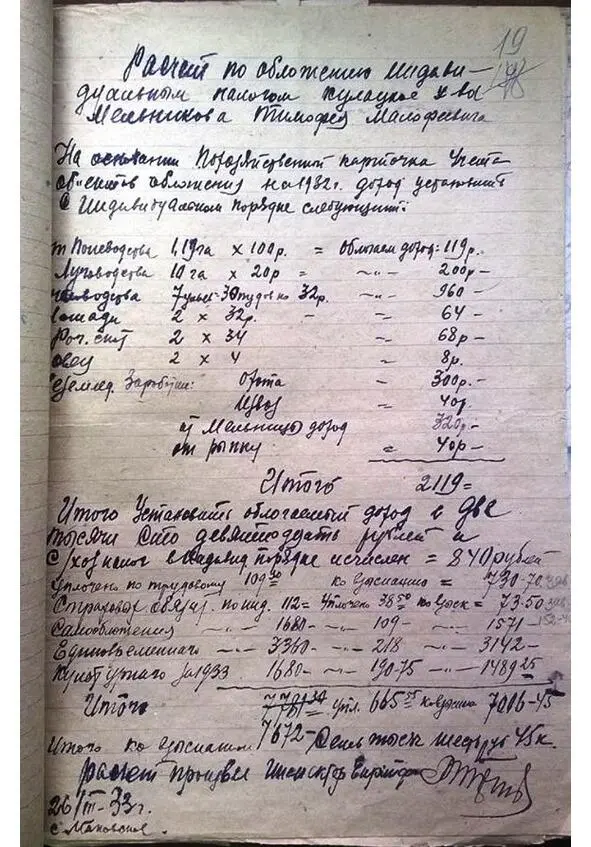 19
Расчет по обложению индиви-
дуальным налогом кулацкое х-ва
Мельникова Тимофея Малофеевича
На основании Похозяйственной карточка учета
об'ектов обложения на 1932 г. доход установить
в индивидуальном порядке следующий:
Полеводства 1,19 га х 100 р. = облагаем доход: 119 р.
Луговодства 10 га х 20 р = -"- 200 р -
7 ульев 30 пудов по 32 р. -"- 960 -
лошади 2 х 32 р. - " - 64 -
Рог. скот 2 х 34 - 68 р -
овец 2 х 4 = 8 р.
Заработки: Охота = 300 р. -
Извоз = 40 р.
от Мельницы доход 320 р -
от рынку = 40 р -
Итого 2119 =
Итого Установить облагаемый доход в две
тысячи сто девятнадцать рублей и
с/хоз налог в индивид порядке исчислен = 840 рублей
Уплочено по трудовому 109 30 ко взысканию = 730-70
Страховое по инд. 112 = Уплочено 38 50 ко взыск = 73-50
Самообложения -"- -"- 1680 - -"- 109 - -"- 1571 -
Единовременного -"- 3360 - -"- 218 -"- 3142 -
Культурного за 1933 1680 - -"- 190-75 -"- 1489 25
Итого упл. 665 55 ко взысканию 7006-45
Итого ко взысканию 7672 - Семь тысяч шесть руб 45 к.
расчет произвел инспектор
26/III-33 г.
с. Маковское.